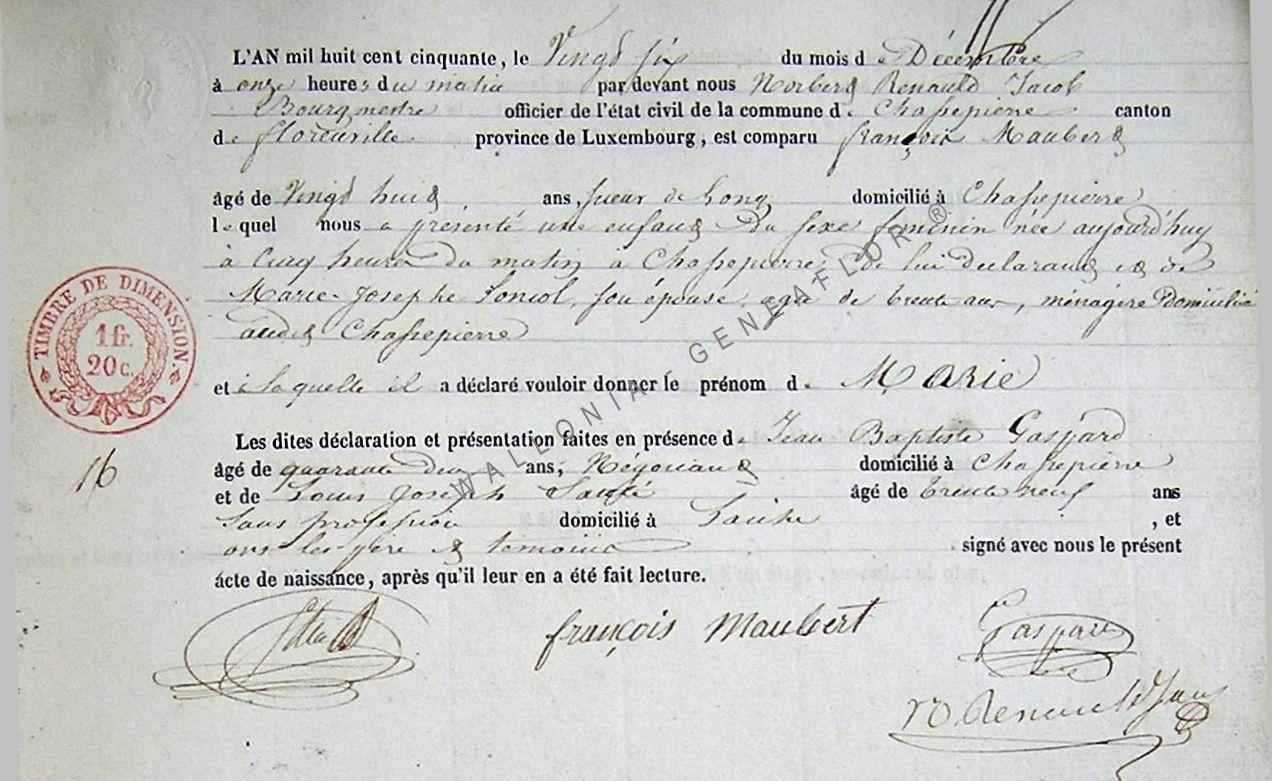 L'AN mil huit cent cinquante, le Vingt six du mois de Décembre
à onze heures du matin par devant nous Norbert Renauld Jacob
Bourgmestre officier de l'état civil de la commune de Chassepierre canton
de florenville province de Luxembourg, est comparu françois Maubert
âgé de Vingt huit ans, domicilié à Chassepierre
lequel nous a présenté une enfant du sexe feminin née aujourd'huy
à Cinq heures du matin à Chassepierre de lui déclarant et de
Marie-Josephe son épouse, agée de trente ans, ménagère Domicilié
audit Chassepierre
et à laquelle il a déclaré vouloir donner le prénom de MARIE
Les dites déclaration et présentation faites en présence de Jean Baptiste Gaspard
âgé de quarante deux ans, Négociant domicilié à Chassepierre
et de Louis Joseph âgé de trente neuf ans
sans profession domicilié à , et
ont les père & temoins signé avec nous le présent
acte de naissance, après qu'il leur en a été fait lecture.
françois maubert
Gaspard
TIMBRE DE DIMENSION
1 fr.
20 c.
16
WALLONIA - GENEAFLOR ®